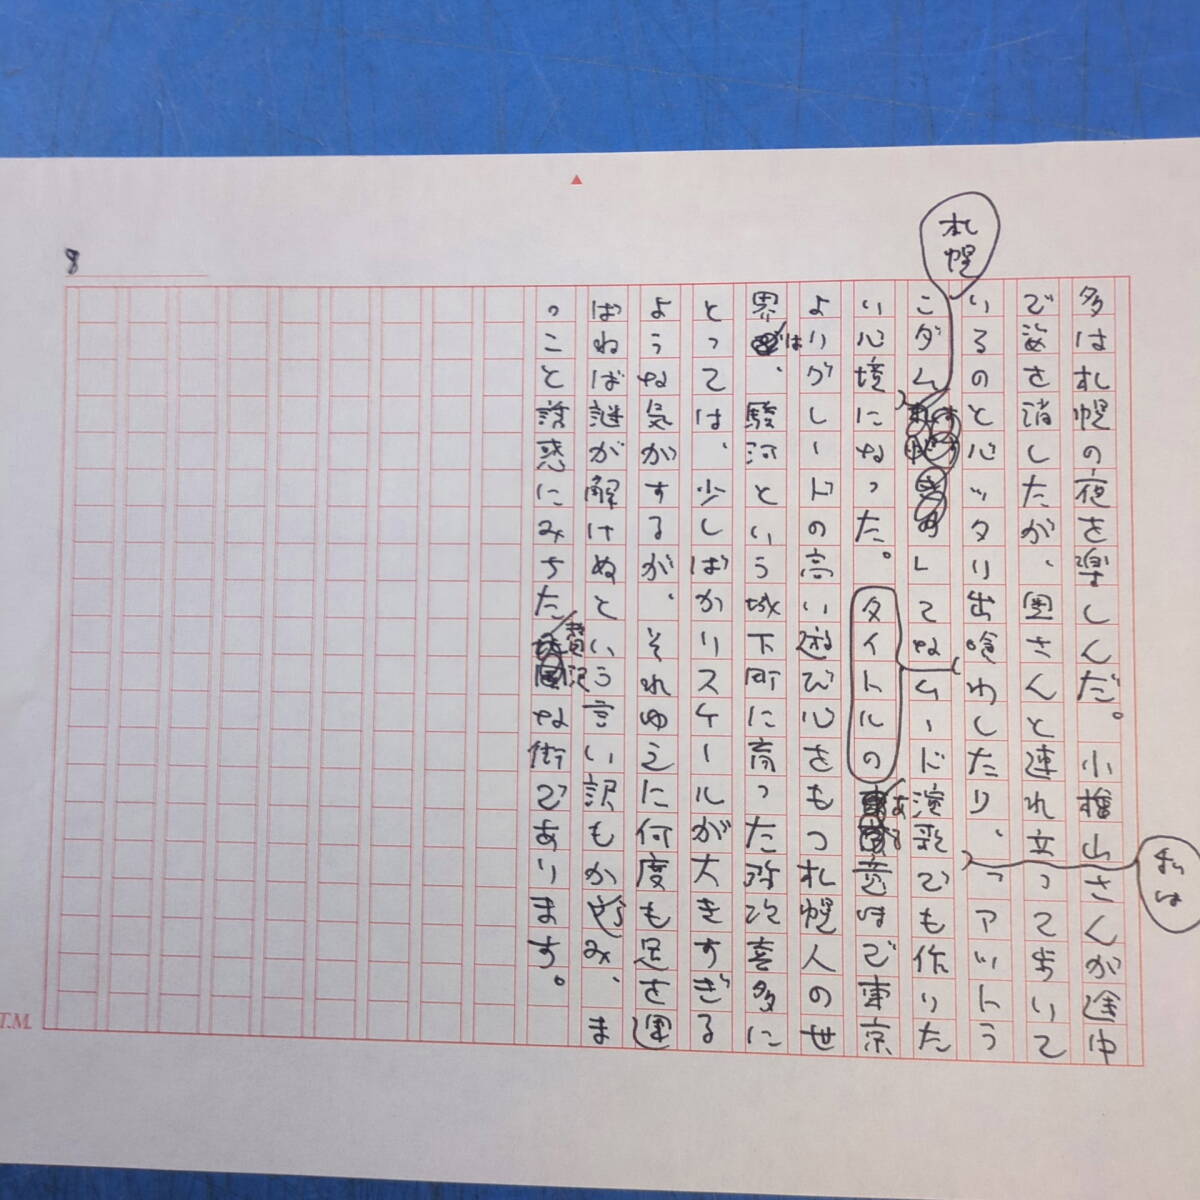 8
札幌
多は札幌の夜を楽しんだ。小檜山さんが途中
で姿を消したが、囲さんと連れ立って歩いて
いるのとバッタリ出喰わしたり、「アットウ
私は
こダム
してなムード演歌でも作りた
い心境になった。タイトルのある意味で東京
よりグレードの高い遊び心をもつ札幌人の世
界は、駿河という城下町に育った弥次喜多に
とっては、少しばかりスケールが大きすぎる
ような気がするが、それゆえに何度も足を運
ばねば謎が解けぬという言い訳もかみ、ま
っこと誘惑にみちた贅沢な街であります。
T.M.